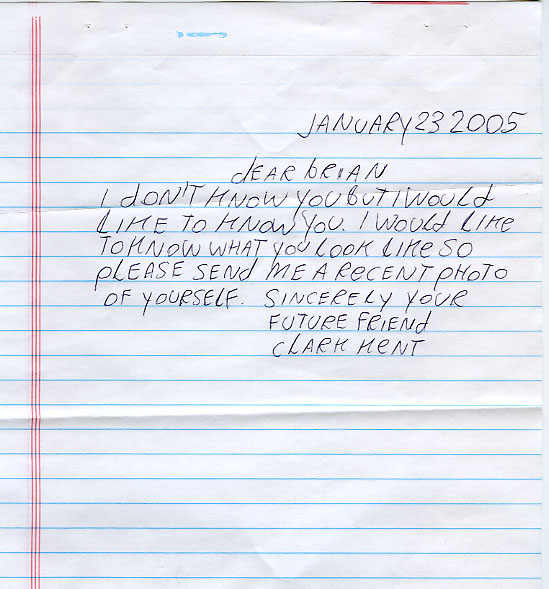 JANUARY 23 2005
dEAR brIAN
I dON'T KNOW YOU BUT I WOULd
LIKE TO KNOW YOU. I WOULd LIKE
TO KNOW WHAT YOU LOOK LIKE SO
pLEASE SENd ME A rECENT pHOTO
OF YOURSELF. SINCERELY YOUR
FUTURE FrIENd
CLARK KENT